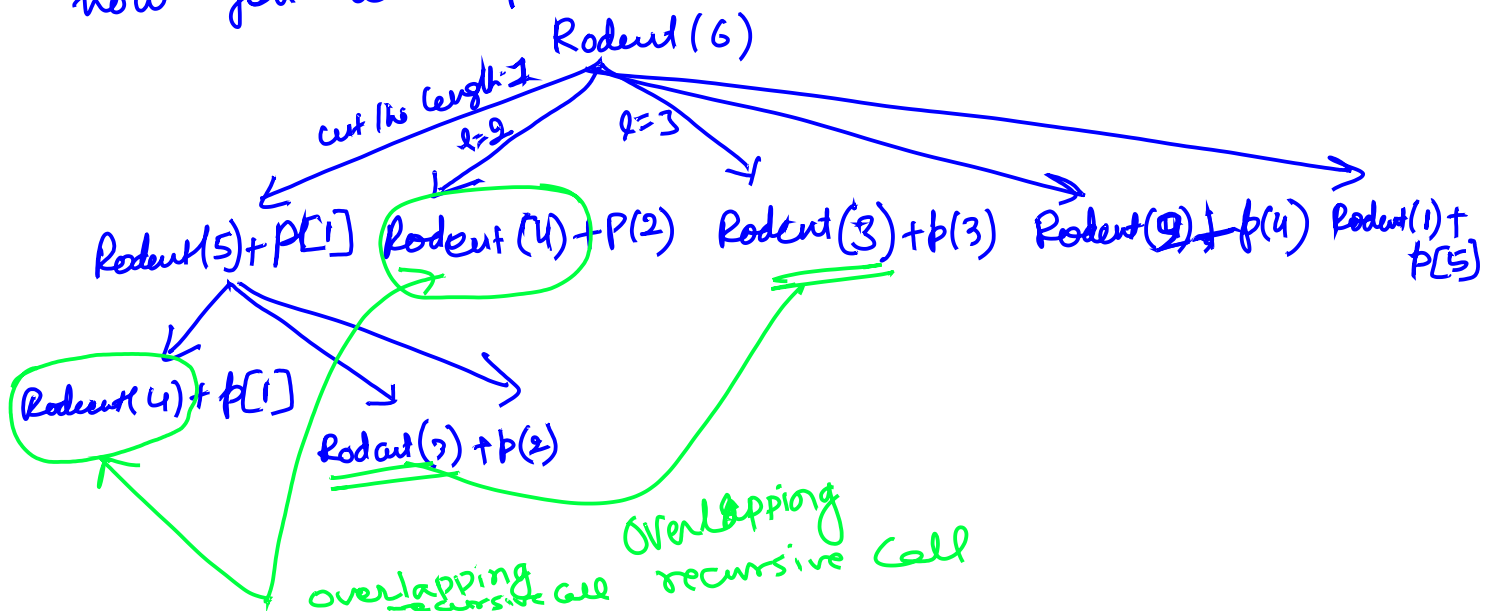 how you
Rodcut(6)
cut the length-1
l=2
l=3
Rodcut(5)+p[1] Rodcut(4)+P(2) Rodcut(3)+p(3) Rodcut(2)+p(4) Rodcut(1)+
p[5]
Rodcut(4)+p[1]
Rodcut(3)+p(2)
overlapping
recursive call
overlapping
recursive call